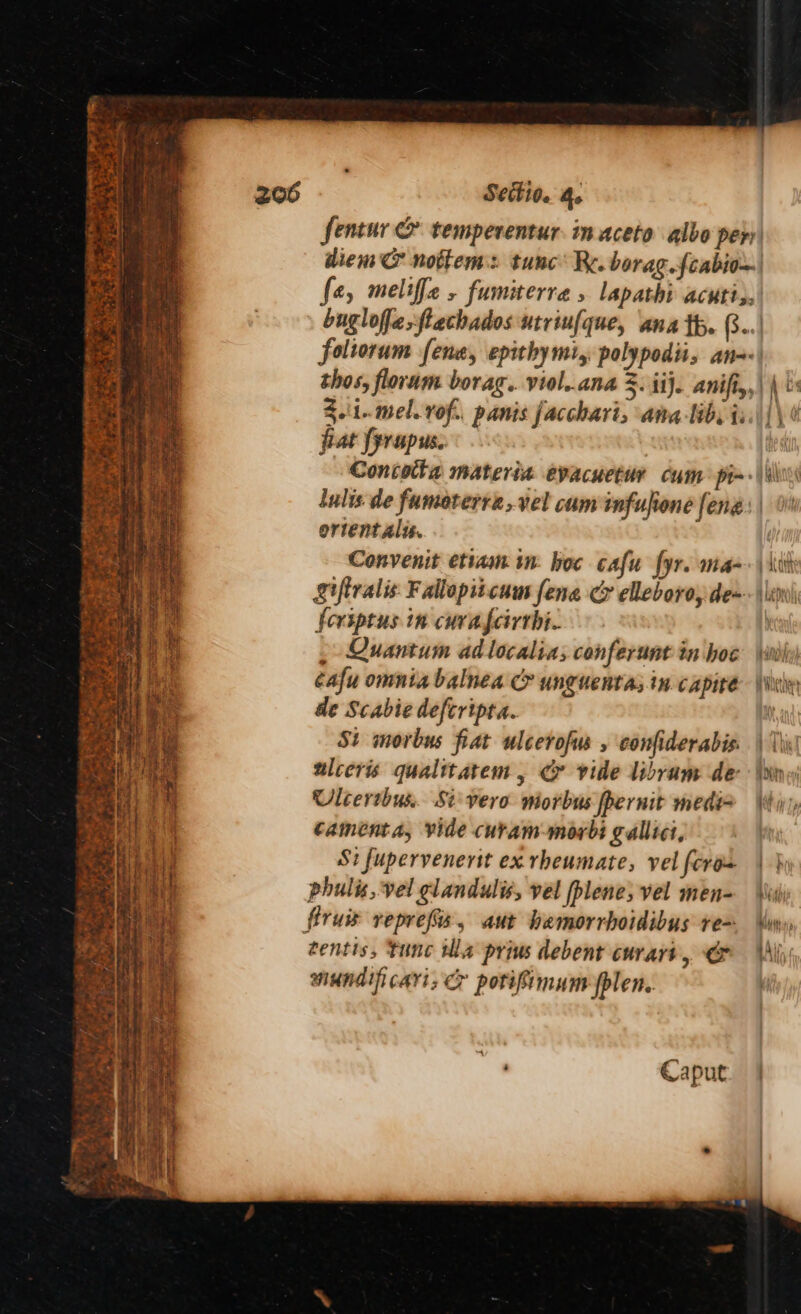 206 Sectio. 4.
ſentur & temperentur in aceto albo per
diem & noctem: tunc ℞. borag. ſcabio-
ſæ, meliſſæ, fumiterræ, lapathi acuti,
bugloſſæ, ſtæchados utriuſque, ana ℔. ß.
foliorum ſenæ, epithymi, polypodii, an-
thos, florum borag. viol. ana ℥. iij. aniſi,
℥. i. mel. roſ. panis ſacchari, ana lib. i.
fiat ſyrupus.
Concocta materia evacuetur cum pi-
lulis de fumoterra, vel cum infuſione ſenæ
orientalis.
Convenit etiam in hoc caſu ſyr. ma-
giſtralis Fallopii cum ſena & elleboro, de-
ſcriptus in cura ſcirrhi.
Quantum ad localia, conferunt in hoc
caſu omnia balnea & unguenta, in capite
de Scabie deſcripta.
Si morbus fiat ulceroſus, conſiderabis
ulceris qualitatem, & vide librum de
Ulceribus. Si vero morbus ſpernit medi-
camenta, vide curam morbi gallici.
Si ſupervenerit ex rheumate, vel ſcro-
phulis, vel glandulis, vel ſplene, vel men-
ſtruis repreſſis, aut hæmorrhoidibus re-
tentis, tunc illa prius debent curari, &
mundificari, & potiſſimum ſplen.
Caput